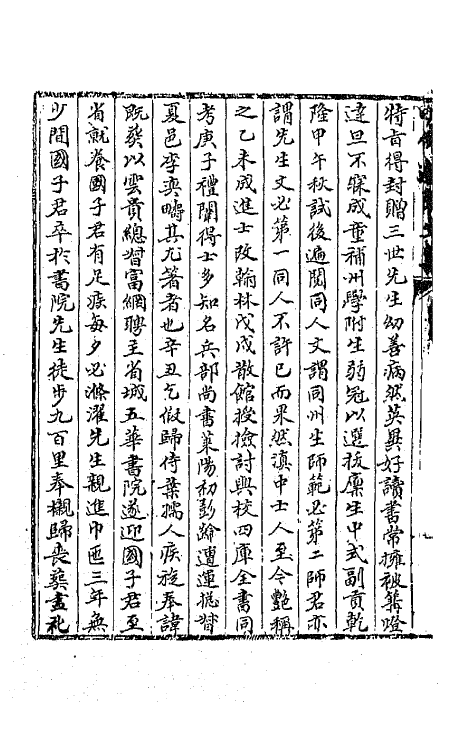 特旨得封贈三世先生幼善病然英異好讀書常擁被篝燈
達旦不寐成童補州學附生弱冠以選拔廩生中式副貢乾
隆甲午秋試後遍閱同人文謂同州生師範必第二師君亦
謂先生文必第一同人不許已而果然滇中士人至今艷稱
之乙未成進士改翰林戊戌散館授檢討與校四庫全書同
考庚子禮闈得士多知名兵部尚書萊陽初彭齡漕運總督
夏邑李奕疇其尤著者也辛丑乞假歸侍葉孺人疾旋奉諱
既葬以雲貴總督富綱聘主省城五華書院遂迎國子君至
省就養國子君有足疾每夕必滌濯先生親進巾匜三年無
少間國子君卒於書院先生徒步九百里奉櫬歸喪葬盡禮